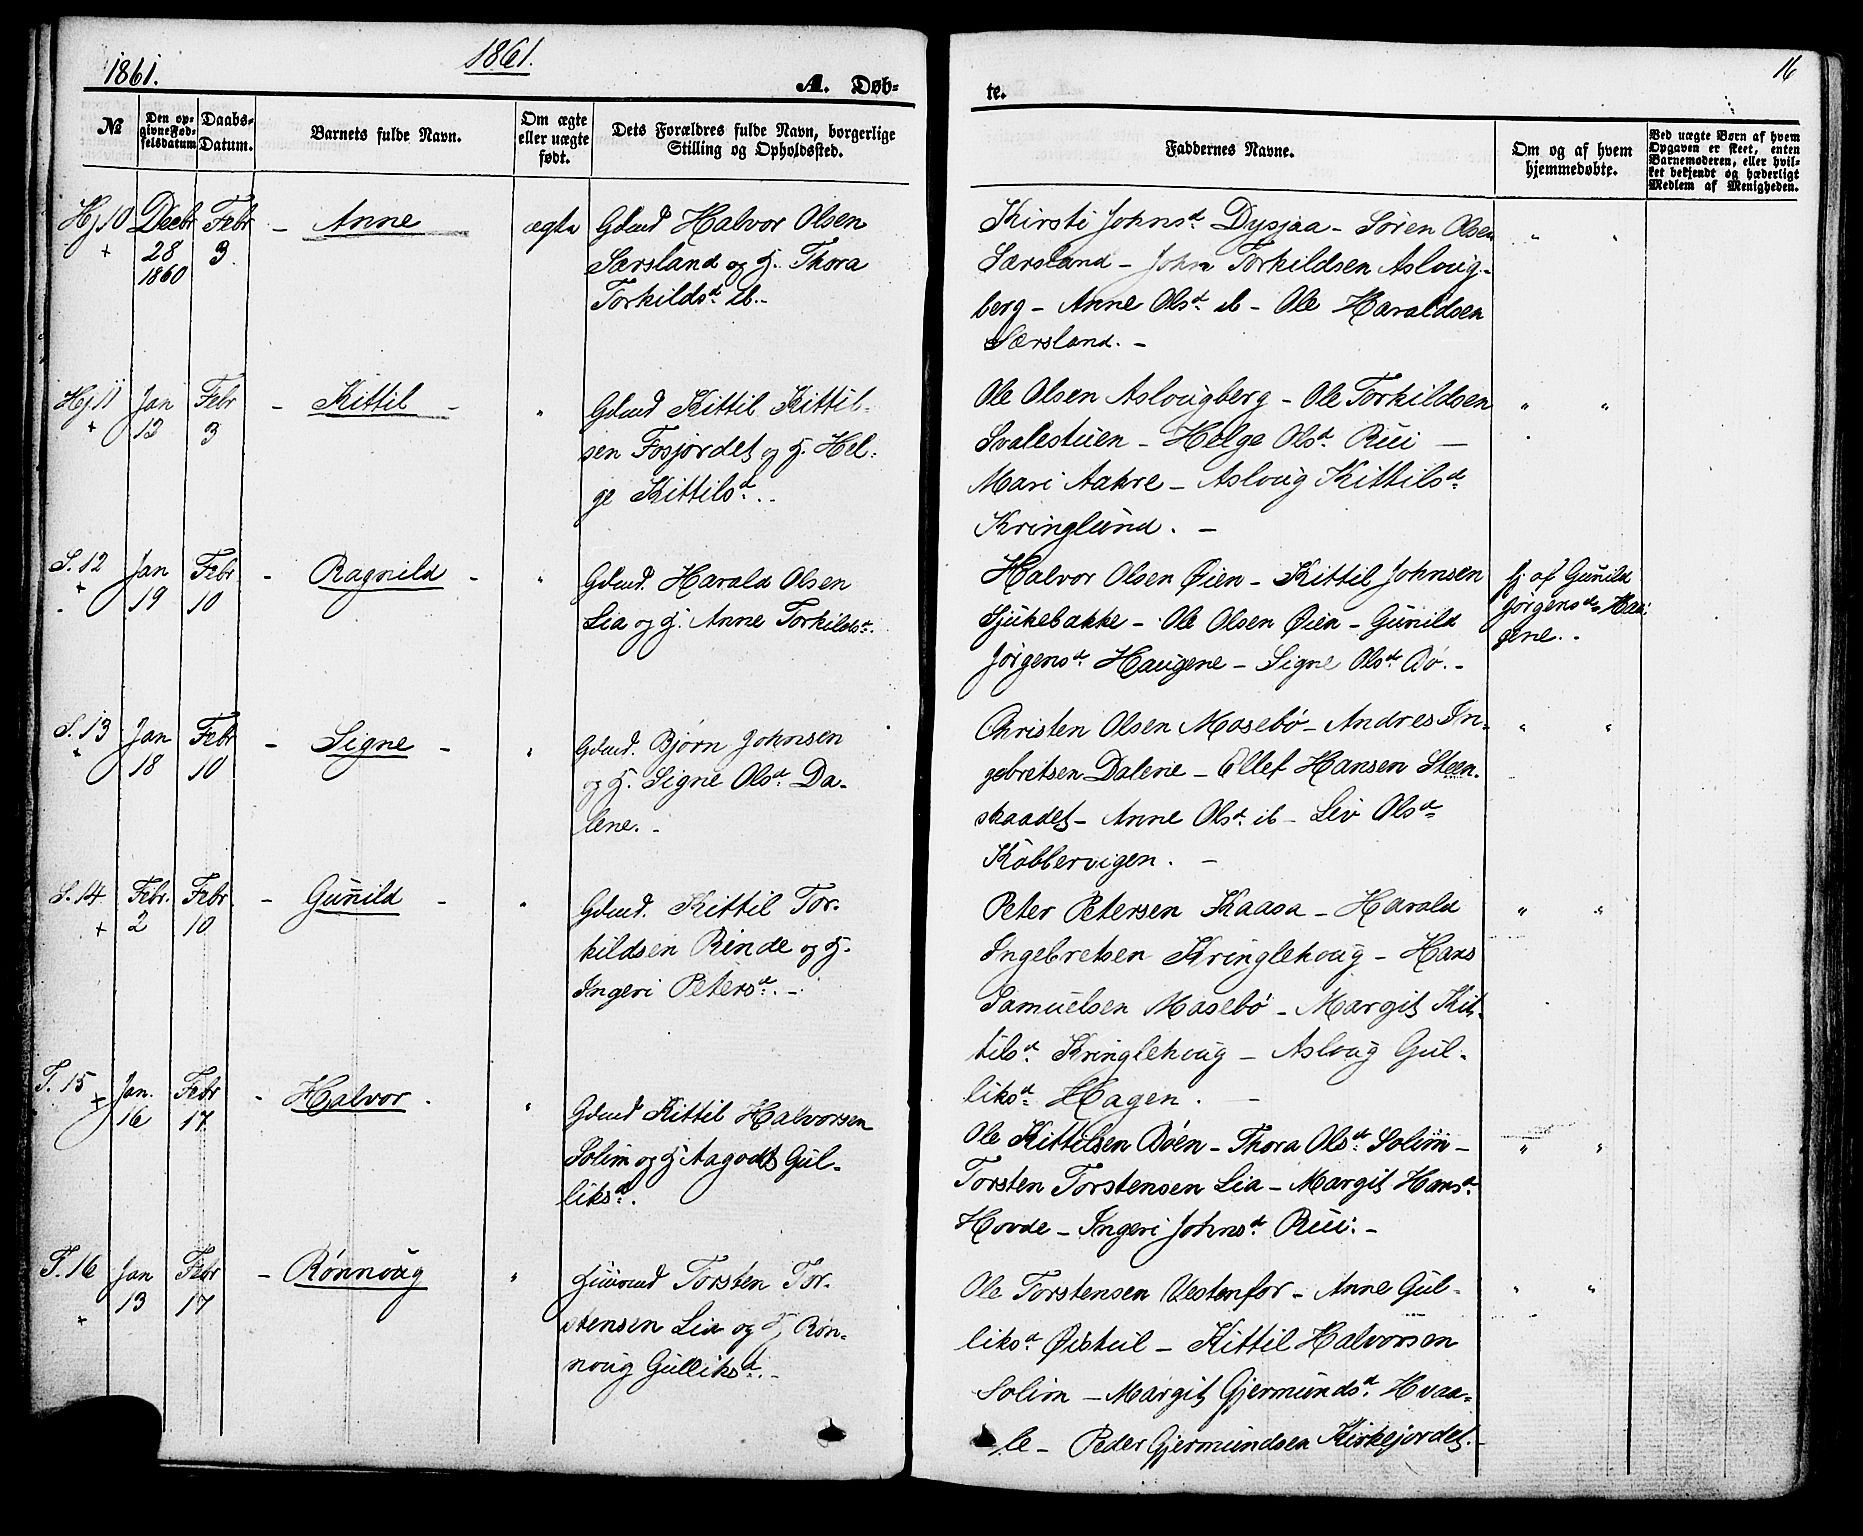 1861.
1861.
A. Døb-
te.
16
№
Den op-
givne Fød-
selsdatum
Daabs-
Datum.
Barnets fulde Navn.
Om ægte
eller uægte
født.
Dets Forældres fulde Navn, borgerlige
Stilling og Opholdssted.
Faddernes Navne.
Om og af hvem
hjemmedøbte.
Ved uægte Børn af hvem
Opgaven er skeet, enten
Barnemoderen, eller hvil-
ket bekjendt og hæderligt
Medlem af Menigheden.
Hj. 10 Decbr Febr - Anne ægte Gdmd Halvor Olsen
+ 28 3. Særsland og H. Thora
1860 Torkildsd. ib.-
Kirsti Johnsd. Dysjaa - Søren Olsen " "
Særsland - John Torkildsen Asloug-
berg - Anne Olsd. ib - Ole Haraldsen
Særsland. -
Hj. 11 Jan Febr - Kittil - " Gdmd Kittil Kittil-
+ 12 3 sen Fosjordet og H. Hel-
ge Kittilsd. -
Ole Olsen Aslougberg - Ole Torkildsen " "
Svalestuen - Helga Olsd. Rui -
Mari Aakre - Asloug Kittilsd.
Kringlund. -
S. 12 Jan Febr - Ragnild - " Gdmd. Harald Olsen
+ 19 10 Lia og H. Anne Torkildsd.
Halvor Olsen Øien - Kittil Johnsen hj af Gunild
Sjukebakke - Ole Olsen Øien - Gunild Jørgensd. Hau-
Jørgensd. Haugene - Signe Olsd. Bø. - gene. -
S. 13 Jan Febr - Signe - " Gdmd. Bjørn Johnsen
+ 18 10 og H. Signe Olsd. Da-
lene. -
Christen Olsen Mosebø - Andres In- " "
gebretsen Dalene - Ellef Hansen Steen-
skaadet - Anne Olsd. ib - Liv Olsd.
Kobbervigen. -
S. 14 Febr. Febr - Gunild - " Gdmd. Kittil Tor-
+ 2 10 kildsen Rinde og H.
Ingeri Petersd. -
Peter Petersen Kaasa - Harald " "
Ingebretsen Kringlehoug - Hans
Samuelsen Mosebø - Margit Kit-
tilsd. Kringlehoug - Asloug Gul-
liksd. Hagen. -
T. 15 Jan. Febr - Halvor - " Gdmd Kittil Halvorsen
+ 16 17 Solim og H Aagodt Gul-
liksd.
Ole Kittilsen Bøen - Thora Olsd. Solim - " "
Torsten Torstensen Lia - Margit Hansd.
Hovde - Ingeri Johnsd. Rui. -
T. 16 Jan Febr - Rønnoug " Huusmd Torsten Tor-
+ 13 17 stensen Lia og H Røn-
noug Gulliksd. -
Ole Torstensen Vestenfor - Anne Gul- " "
liksd. Øistul - Kittil Halvorsen
Solim - Margit Gjermundsd. Hvaa-
le - Peder Gjermundsen Kirkejordet. -